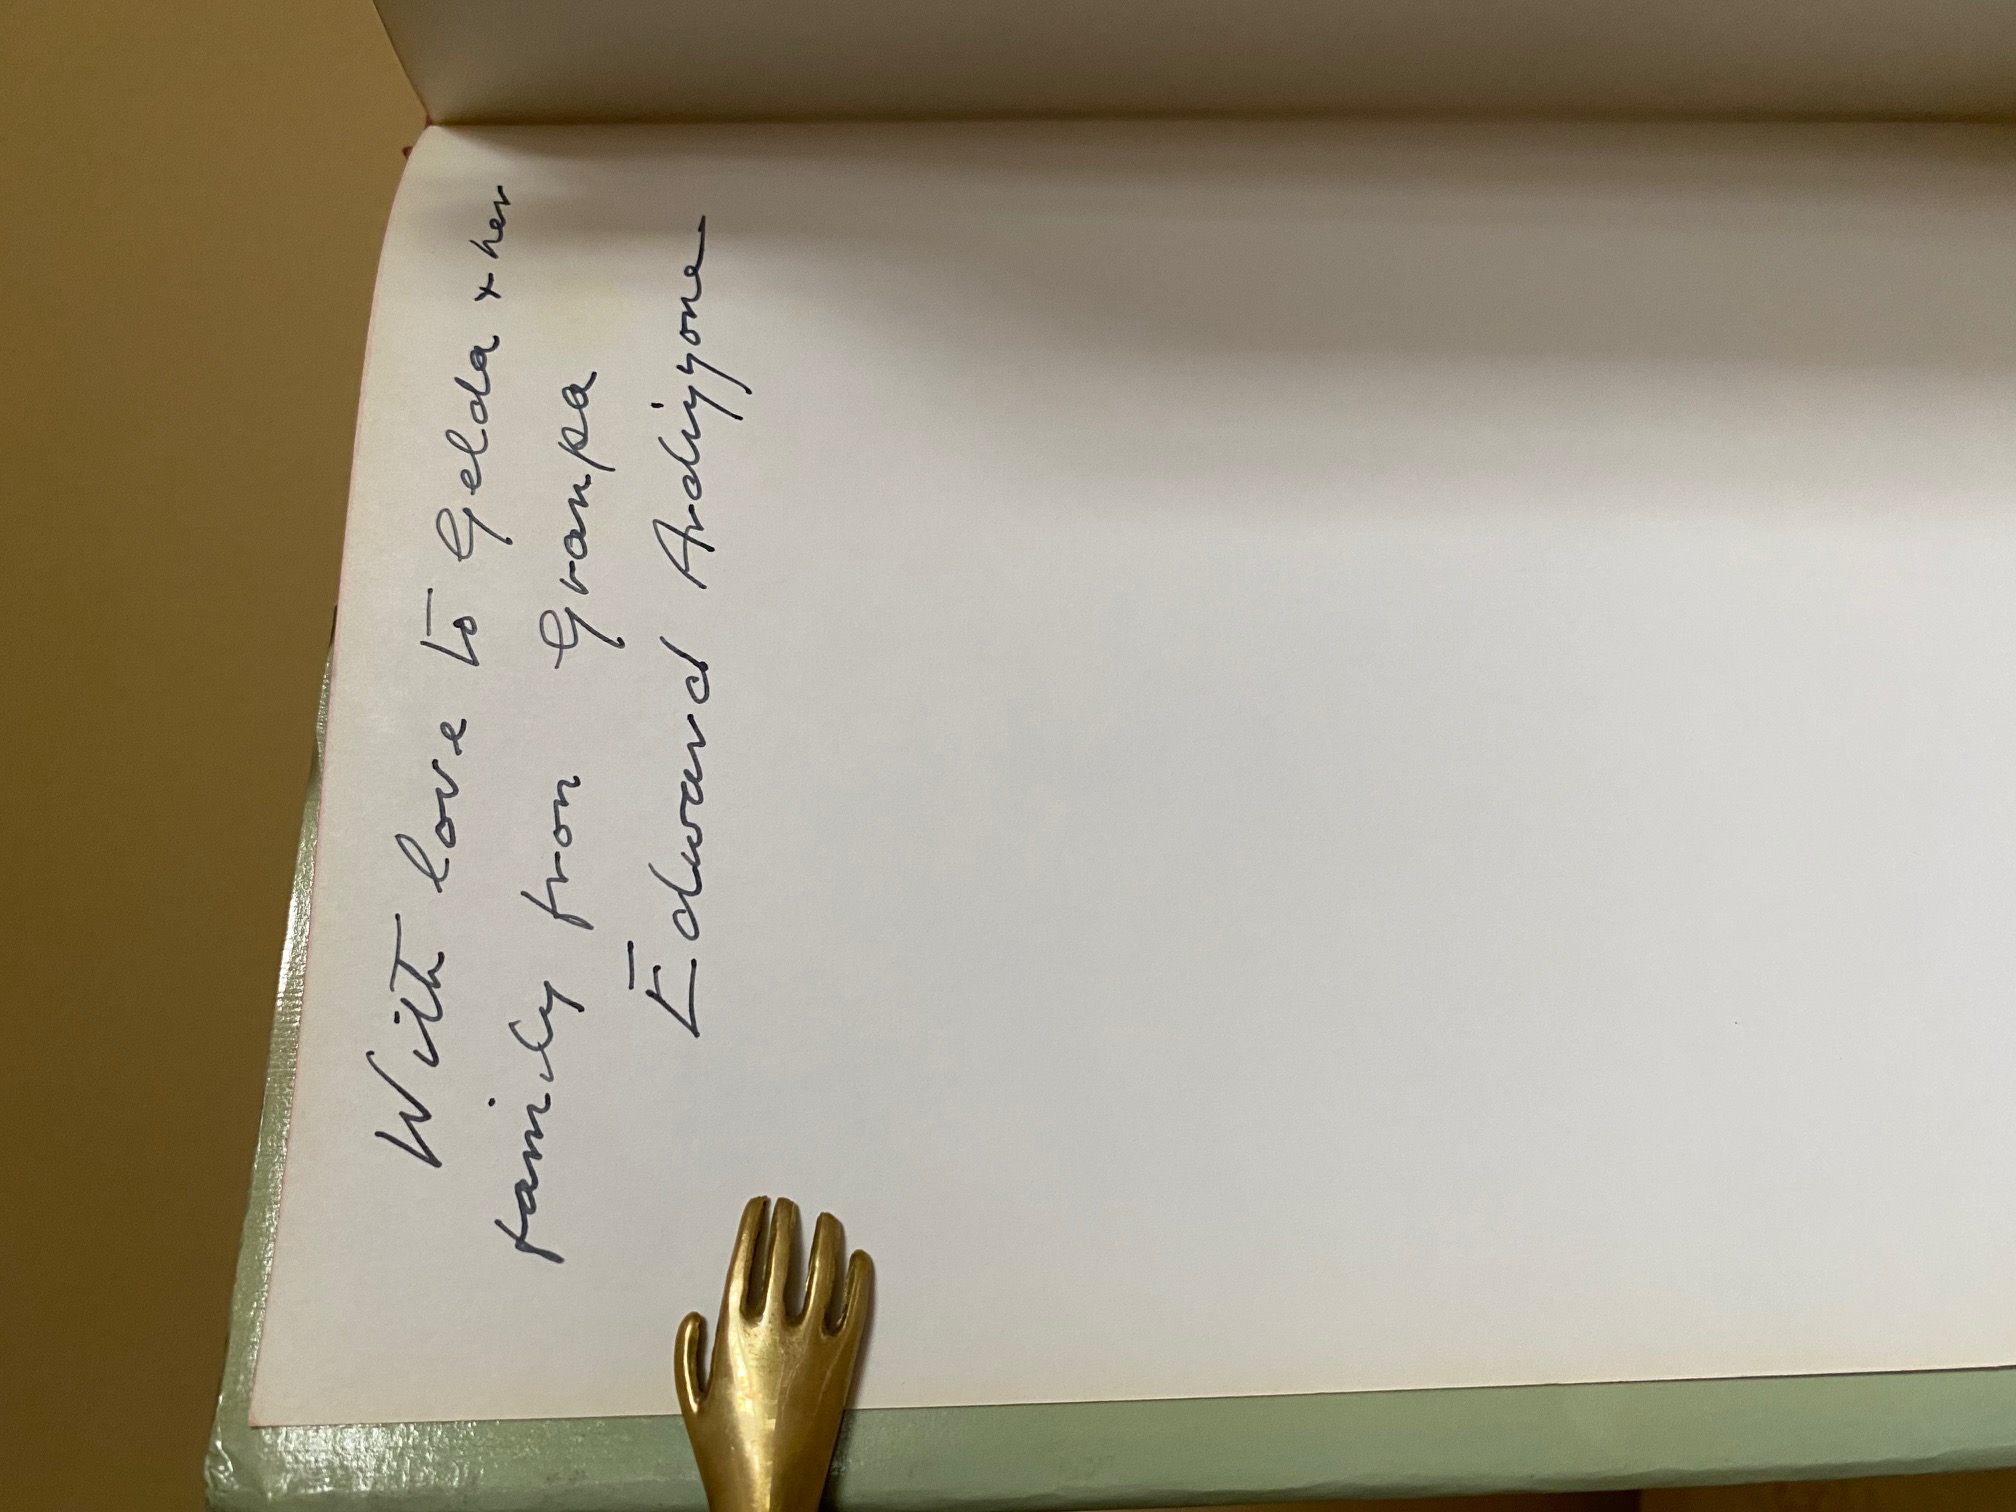 With love to Gelda + her
family from Granpa
Edward Ardizzone